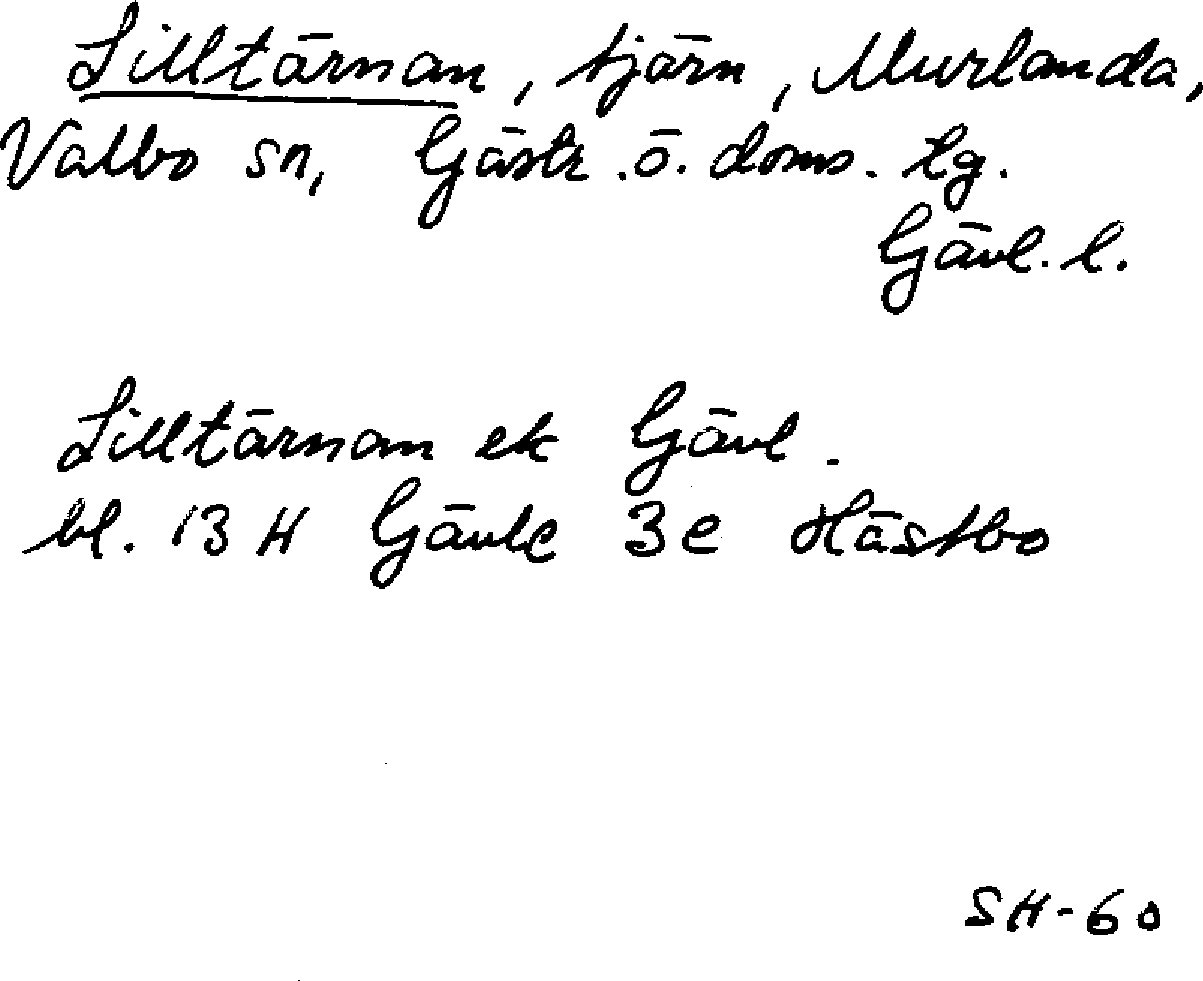 Lilltärnan, tjärn, Murlanda,
Valbo sn, Gästr. ö. doms. lg.
Gävl. l.
Lilltärnan ek Gävl.
bl. 13 H Gävle 3e Hästbo
SH-60